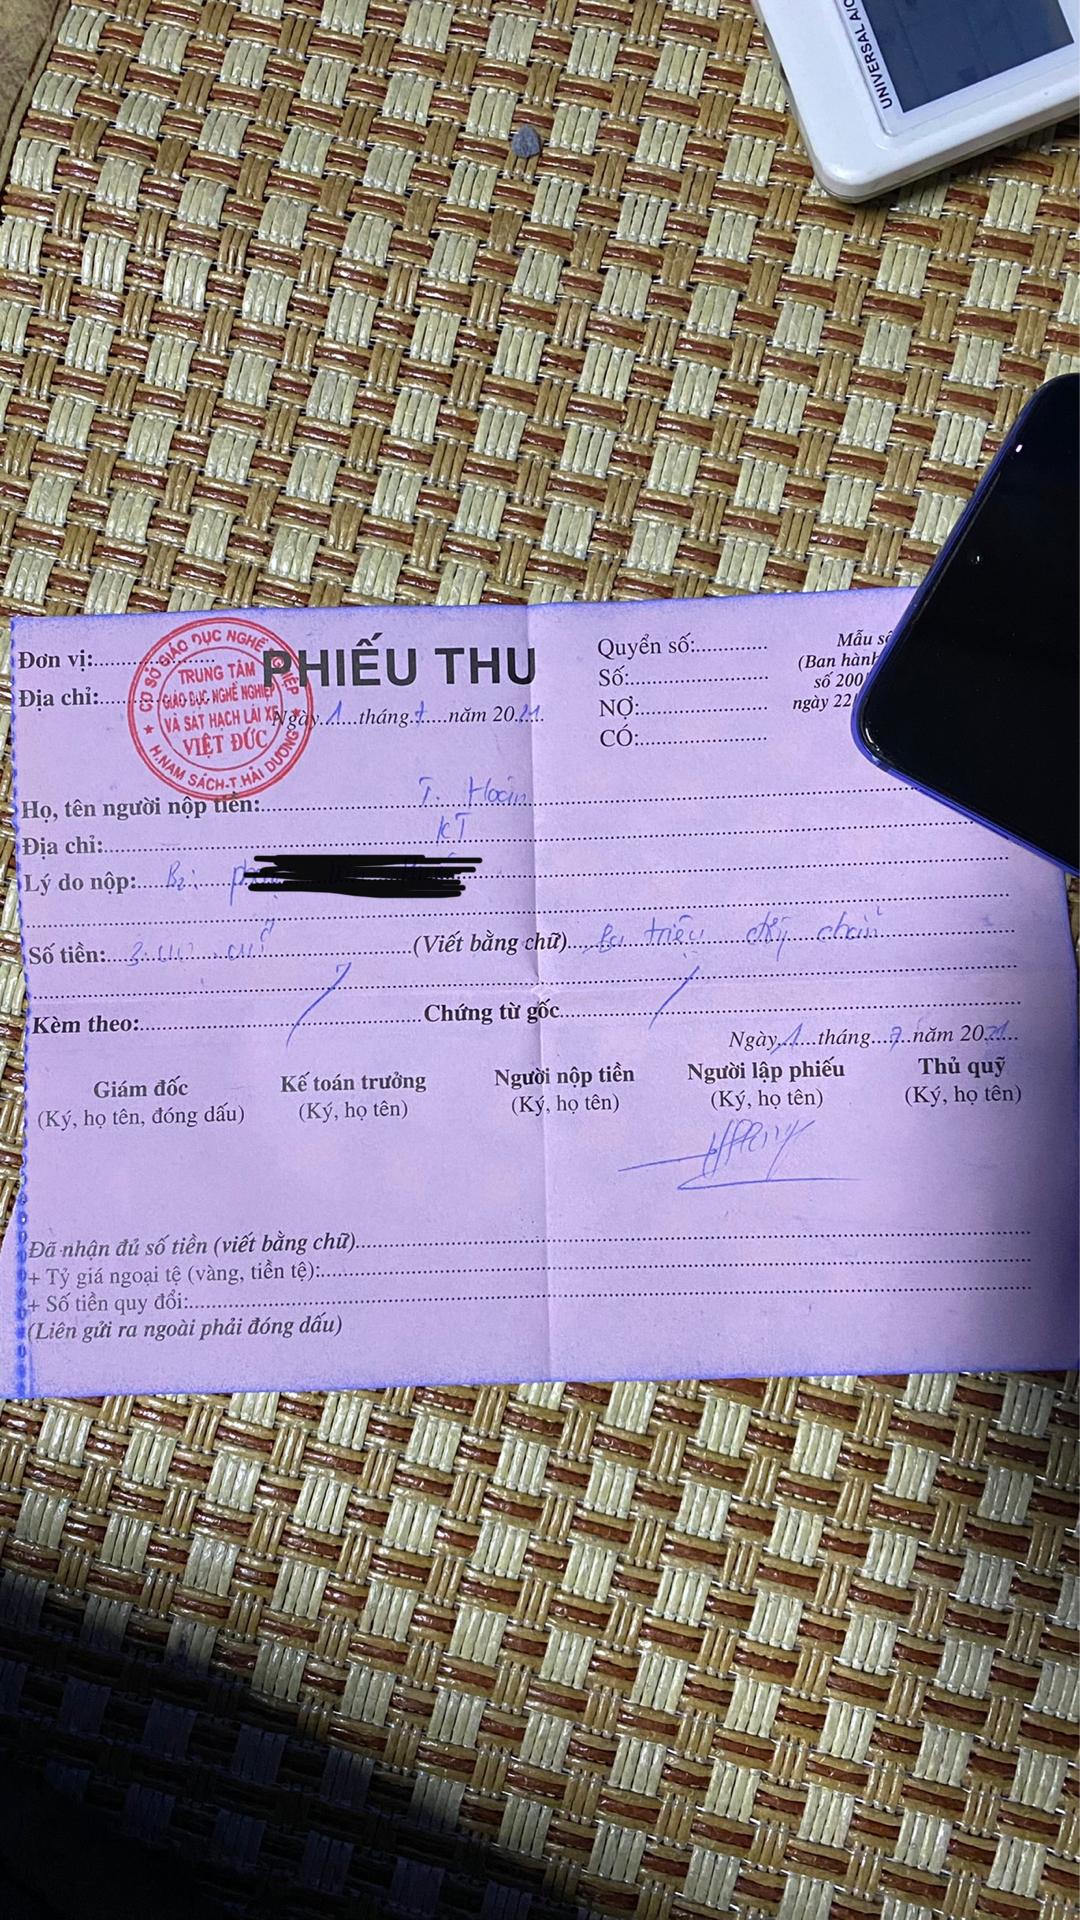 UNIVERSAL A/C
Đơn vị:
Địa chỉ:
CƠ SỞ GIÁO DỤC NGHỀ NGHIỆP
TRUNG TÂM
GIÁO DỤC NGHỀ NGHIỆP
VÀ SÁT HẠCH LÁI XE
VIỆT ĐỨC
H.NAM SÁCH-T.HẢI DƯƠNG
PHIẾU THU
Ngày 1 tháng 7 năm 2021
Quyển số:
Số:
NỢ:
CÓ:
Mẫu số
(Ban hành
số 200
ngày 22
Họ, tên người nộp tiền: T.
Địa chỉ: KT
Lý do nộp:
Số tiền: (Viết bằng chữ) Ba triệu chẵn
Kèm theo: Chứng từ gốc
Ngày 1 tháng 7 năm 2021
Giám đốc
(Ký, họ tên, đóng dấu)
Kế toán trưởng
(Ký, họ tên)
Người nộp tiền
(Ký, họ tên)
Người lập phiếu
(Ký, họ tên)
Thủ quỹ
(Ký, họ tên)
Đã nhận đủ số tiền (viết bằng chữ)
+ Tỷ giá ngoại tệ (vàng, tiền tệ):
+ Số tiền quy đổi:
(Liên gửi ra ngoài phải đóng dấu)